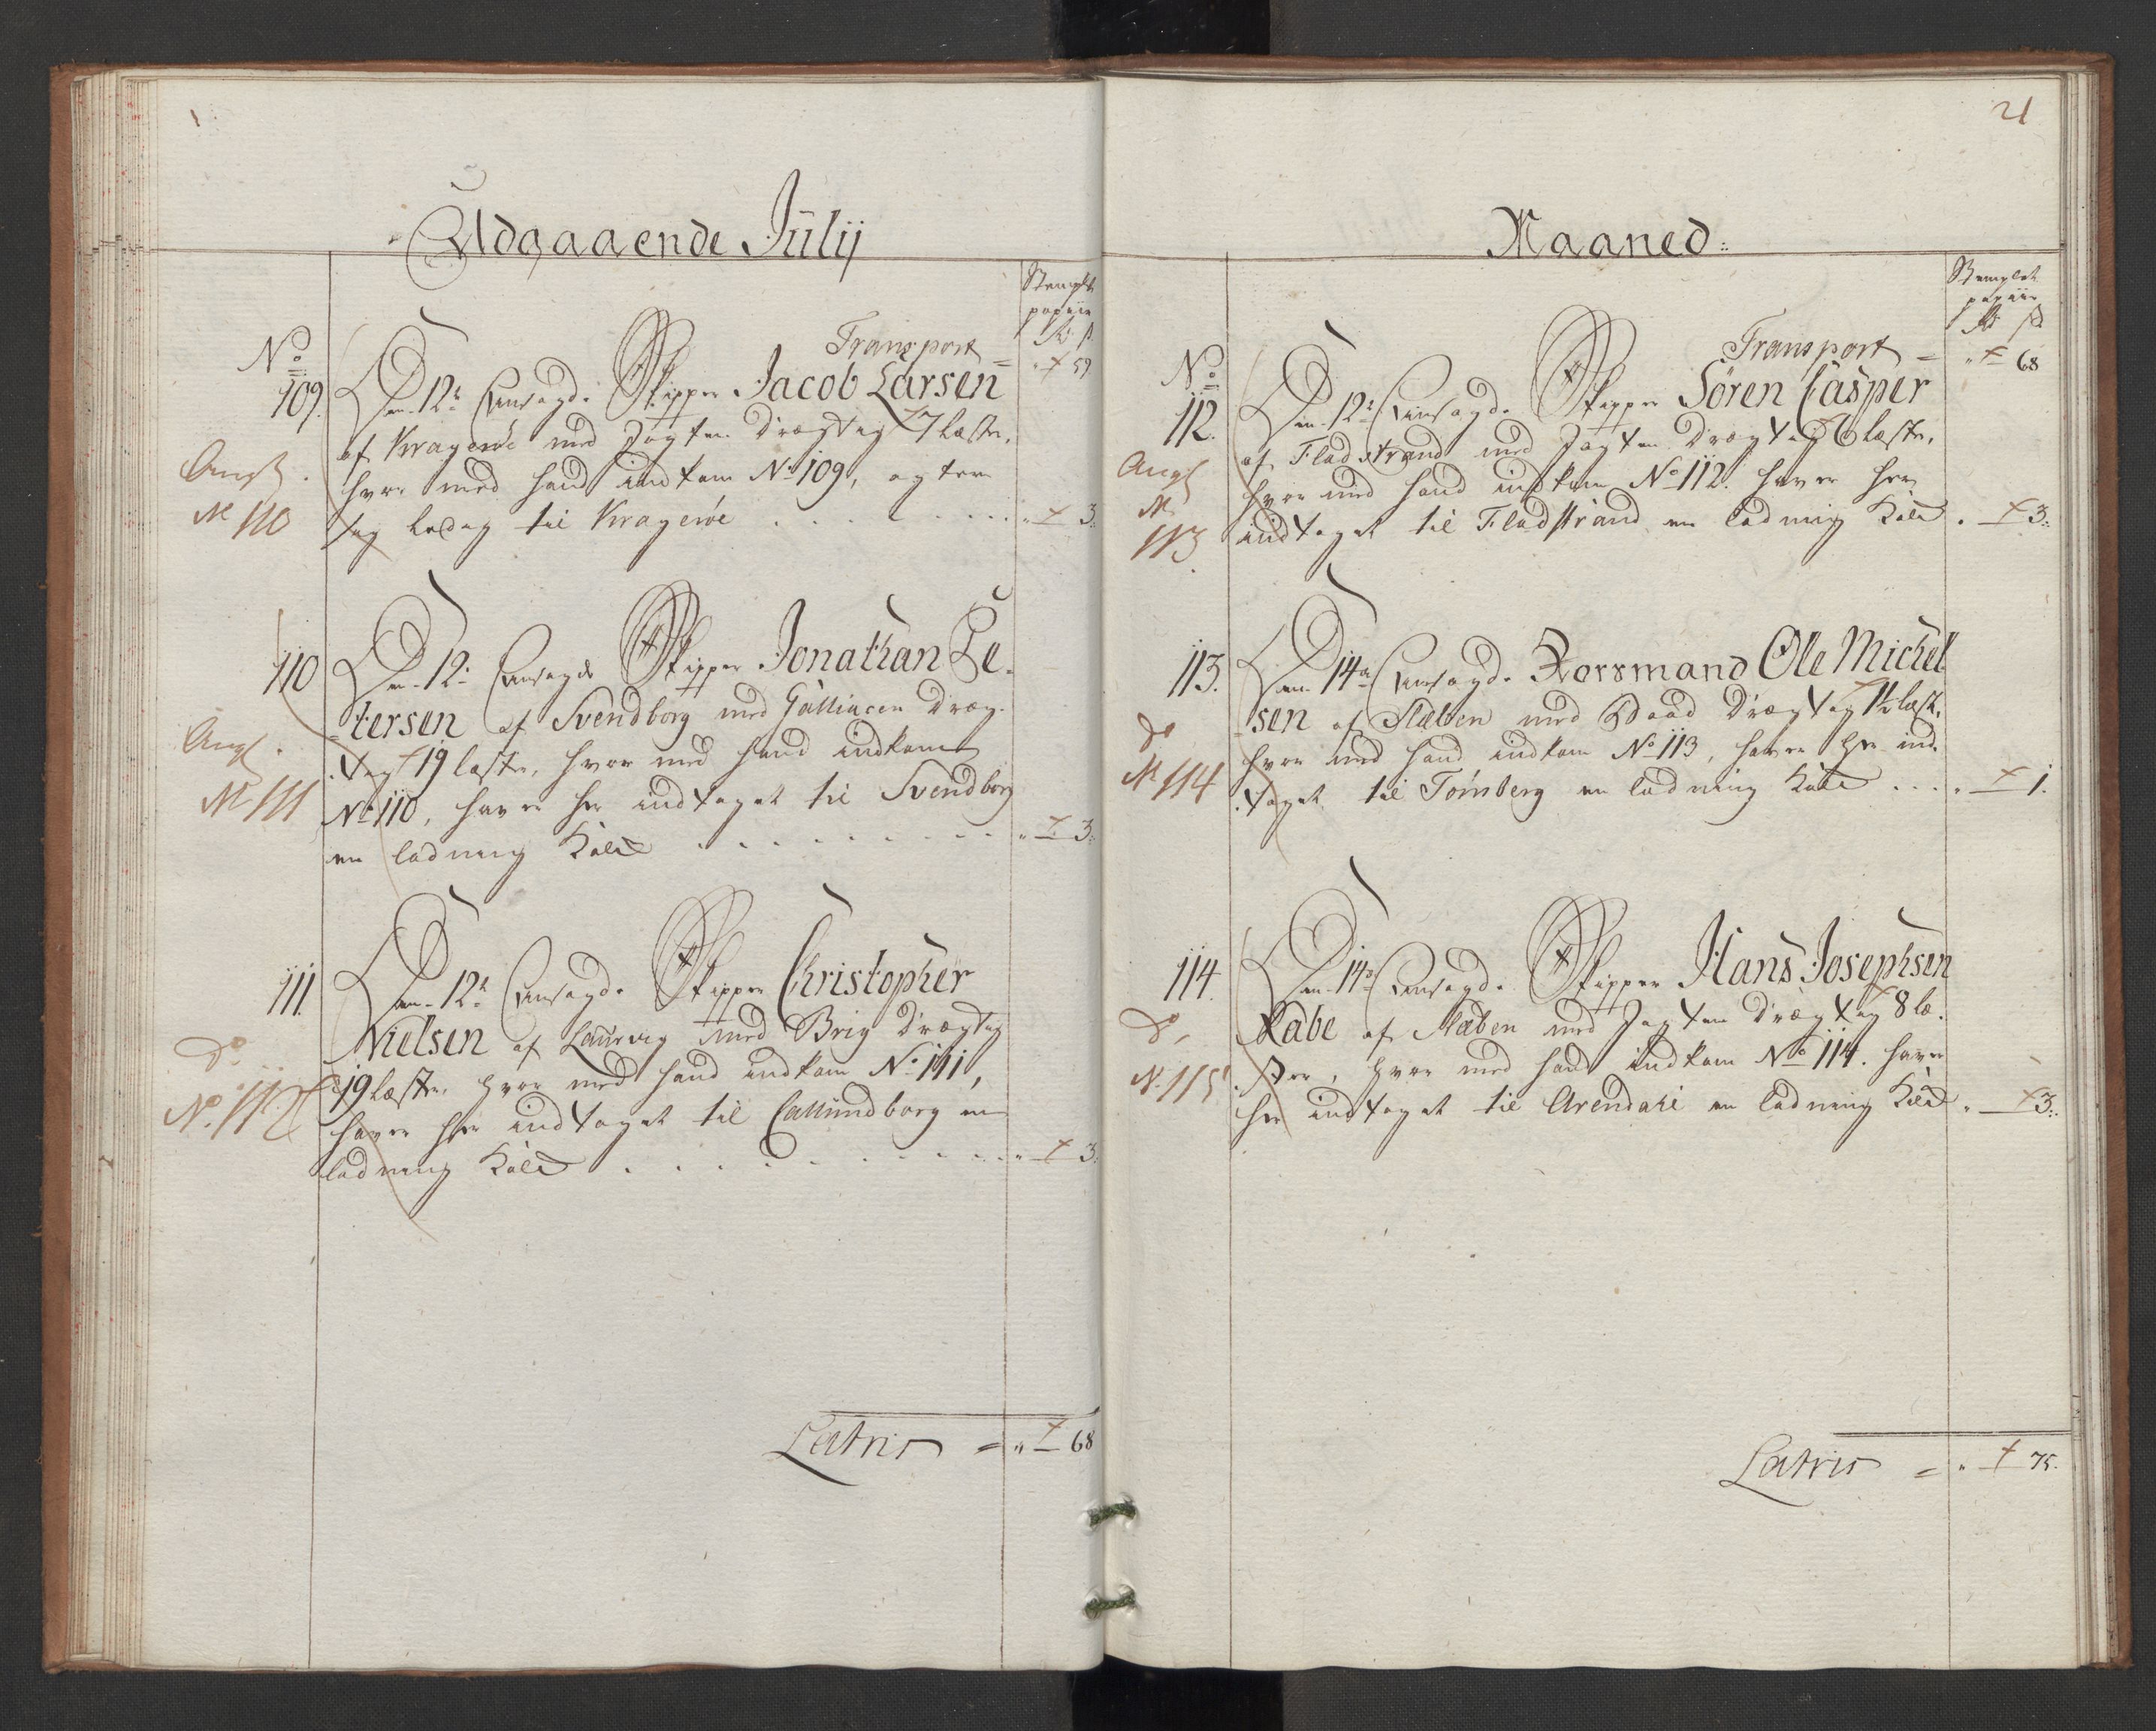 Udgaaende Julij
Stemplt
papiir
Rd ß
Transport = " 59
No
109. Den 12te Ansagde Skipper Jacob Larsen
af Krageröe med Jagten drægtig 7 læster,
hvor med hand indkom No 109, agter
sig ledig til Krageröe . . . . . . . " 3.
Angl.
No 110
110 Den 12te Ansagde Skipper Jonathan Pe-
tersen af Svendborg med Galliacen dræg-
tig 19 læster, hvor med hand indkom
No 110, haver her indtaget til Svendborg
en ladning Kald . . . . . . . . " 3.
Angl.
No 111
111. Den 12te Ansagde Skipper Christopher
Nielsen af Laurvig med Brig drægtig
19 læster, hvor med hand indkom No 111,
haver her indtaget til Callundborg en
ladning Kald . . . . . . . . . " 3.
Do
No. 112
Latris = " 68
21
Maaned
Stemplet
papiir
Rd ß
Transport = " 68
No
112. Den 12te Ansagde Skipper Sören Casper
af Fladstrand med Jagten drægtig 6 læster,
hvor med hand indkom No 112. haver her
indtaget til Fladstrand en ladning Kald . 3.
Angl
No
113
113. Den 14de Ansagde Rorsmand Ole Michel
sen af Slæben med Baad drægtig 1½ læst,
hvor med hand indkom No 113, haver her ind-
taget til Tönsberg en ladning Kald . . . . 1.
Do
No 114
114. Den 14de Ansagde Skipper Hans Josephsen
Rabe af Næben med Jagten drægtig 8 læ-
ster, hvor med hand indkom No 114. haver
her indtaget til Arendahl en ladning Kald . 3.
Do
No. 115
Latris = " 75.